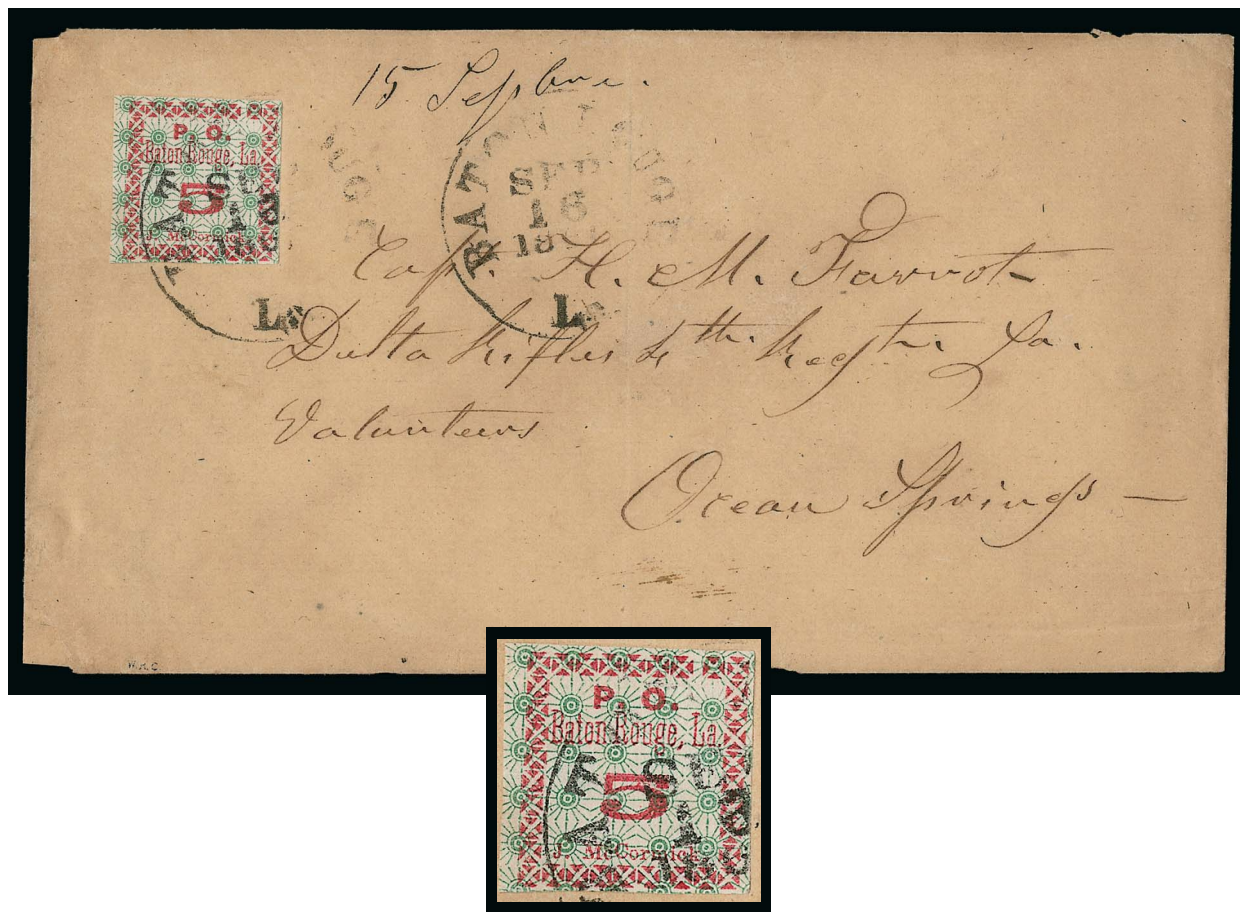 15 Sepbre.
P. O.
Baton Rouge, La.
5
J. McCormick
BATON ROUGE
SEP
16
La.
Cap. H. M. Favrot
Delta Rifles 4th. Regt. La.
Volunteers
Ocean Springs —
P. O.
Baton Rouge, La.
5
J. McCormick